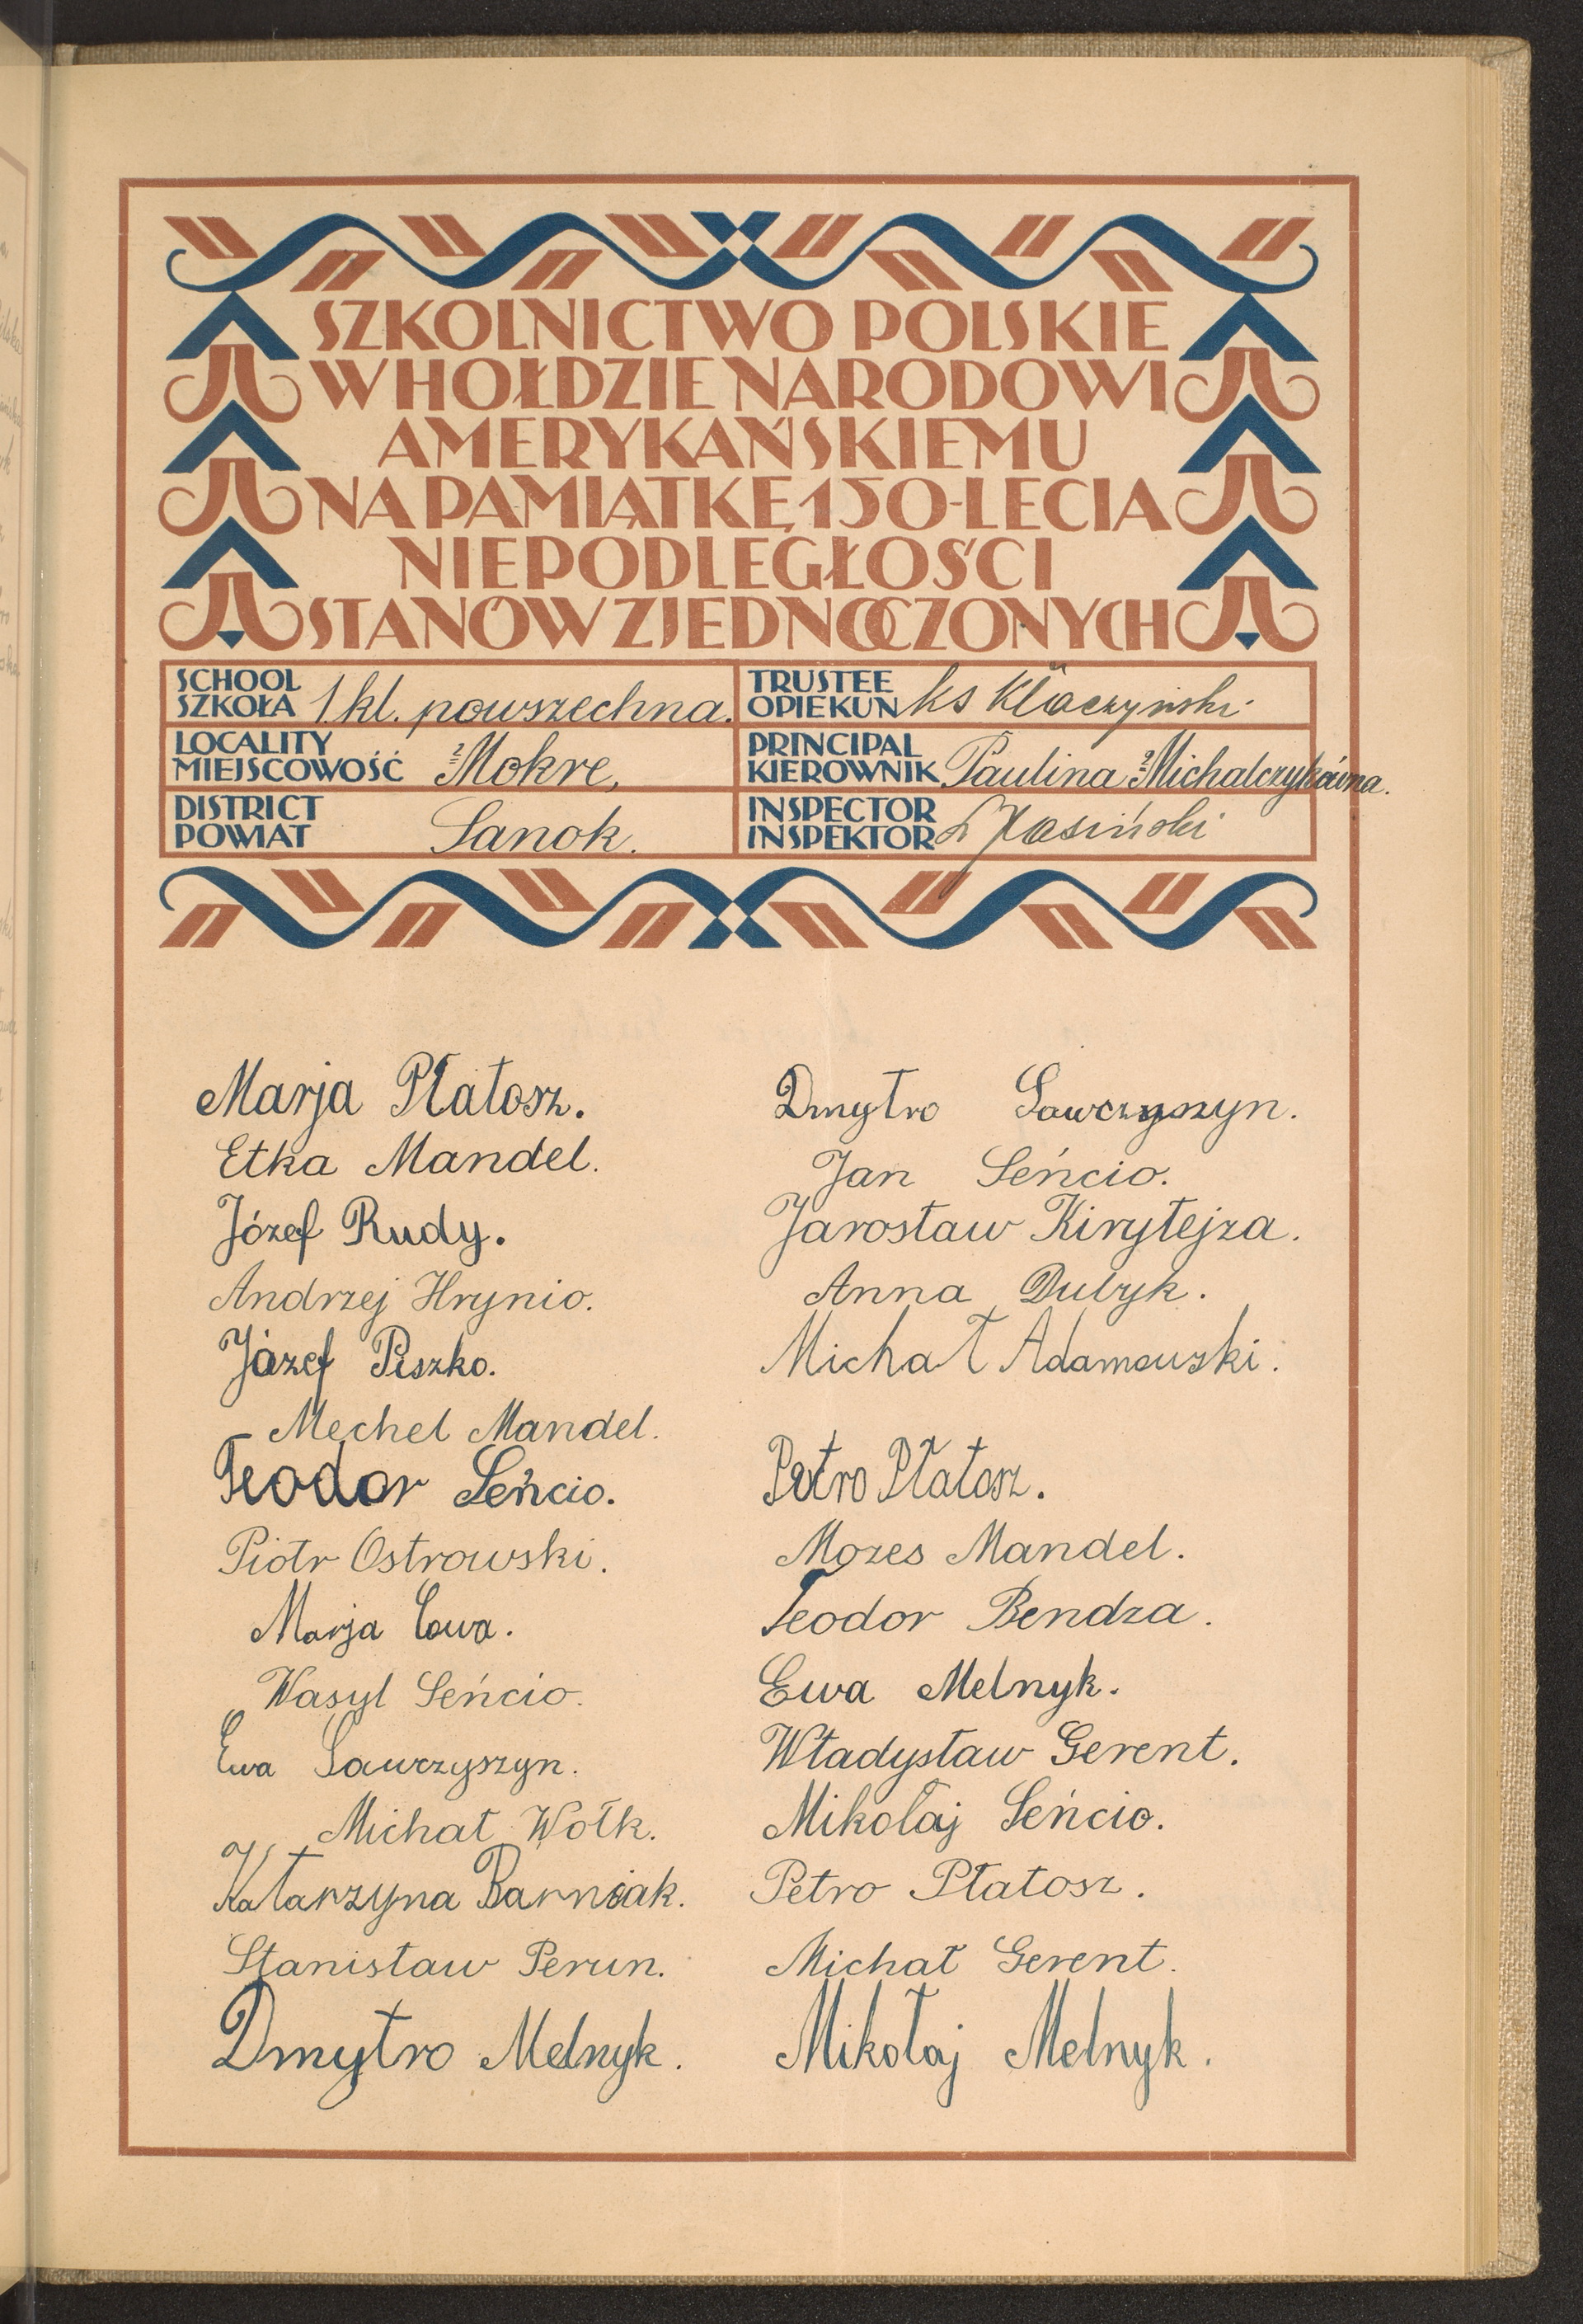 SZKOLNICTWO POLSKIE
W HOŁDZIE NARODOWI
AMERYKAŃSKIEMU
NA PAMIĄTKĘ 150-LECIA
NIEPODLEGŁOŚCI
STANÓW ZJEDNOCZONYCH
SCHOOL
SZKOŁA 1 kl. powszechna.
TRUSTEE
OPIEKUN ks Kłaczyński
LOCALITY
MIEJSCOWOŚĆ Mokre,
PRINCIPAL
KIEROWNIK Paulina Michalczykówna.
DISTRICT
POWIAT Sanok.
INSPECTOR
INSPEKTOR Kosiński
Marja Płatosz.
Etka Mandel.
Józef Rudy.
Andrzej Hrynio.
Józef Piszko.
Mechel Mandel.
Teodor Seńcio.
Piotr Ostrowski.
Marja Cowa.
Wasyl Seńcio.
Ewa Sawczyszyn.
Michał Wołk.
Katarzyna Barniak.
Stanisław Perun.
Dmytro Melnyk.
Dmytro Sawczyszyn.
Jan Seńcio.
Jarosław Kiryłejza.
Anna Dulyk.
Michał Adamowski.
Petro Płatosz.
Mozes Mandel.
Teodor Bendza.
Ewa Melnyk.
Władysław Gerent.
Mikołaj Seńcio.
Petro Płatosz.
Michał Gerent.
Mikołaj Melnyk.